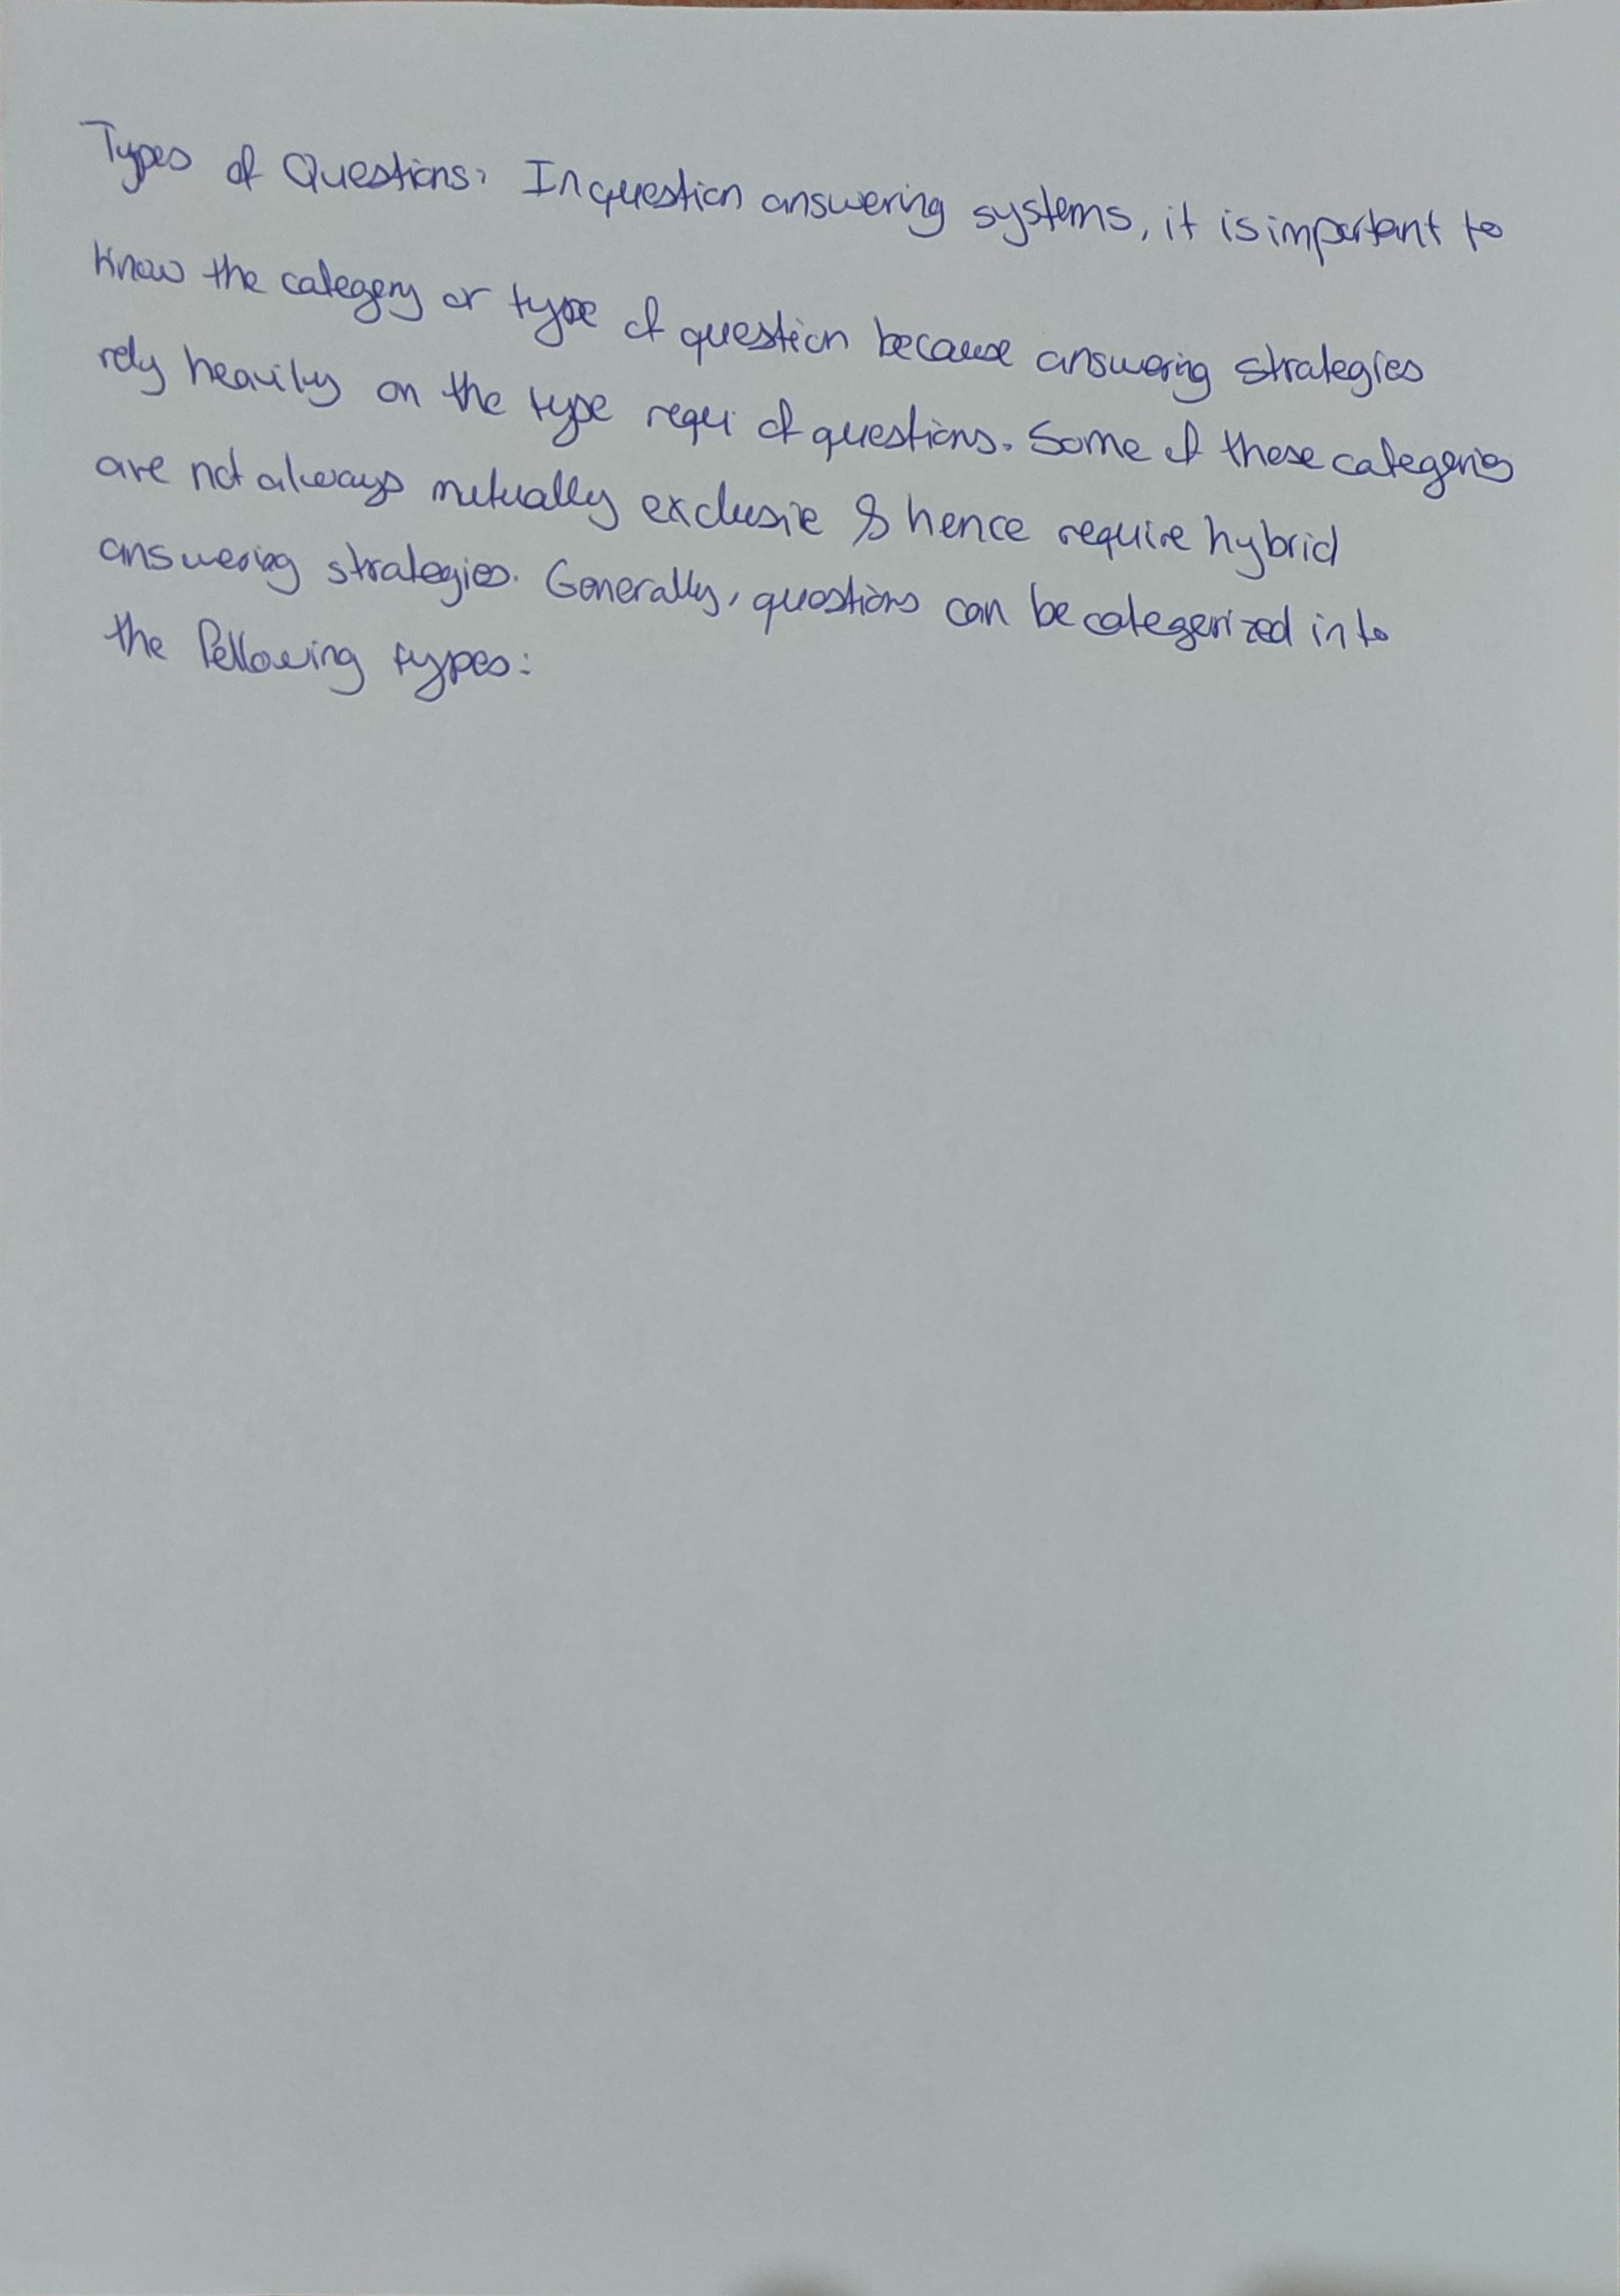 Types of Questions: In question answering systems, it is important to
know the category or type of question because answering strategies
rely heavily on the type requi of questions. Some of these categories
are not always mutually exclusive & hence require hybrid
answering strategies. Generally, questions can be categorized into
the following types: